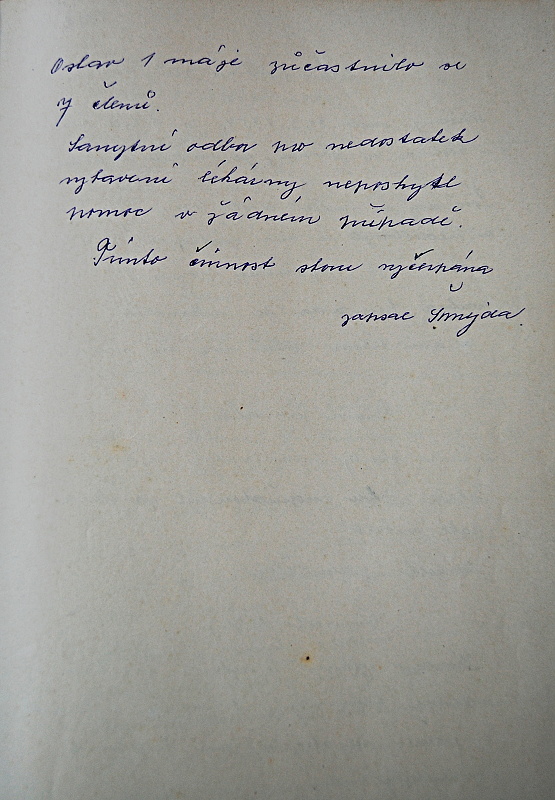 Oslav 1 máje zůčastnilo se
7 členů.
Sanytní odbor pro nedostatek
vybavení lékárny neposkytl
pomoc v žádném případě.
Tímto činnost sboru vyčerpána
zapsal Šmejda.